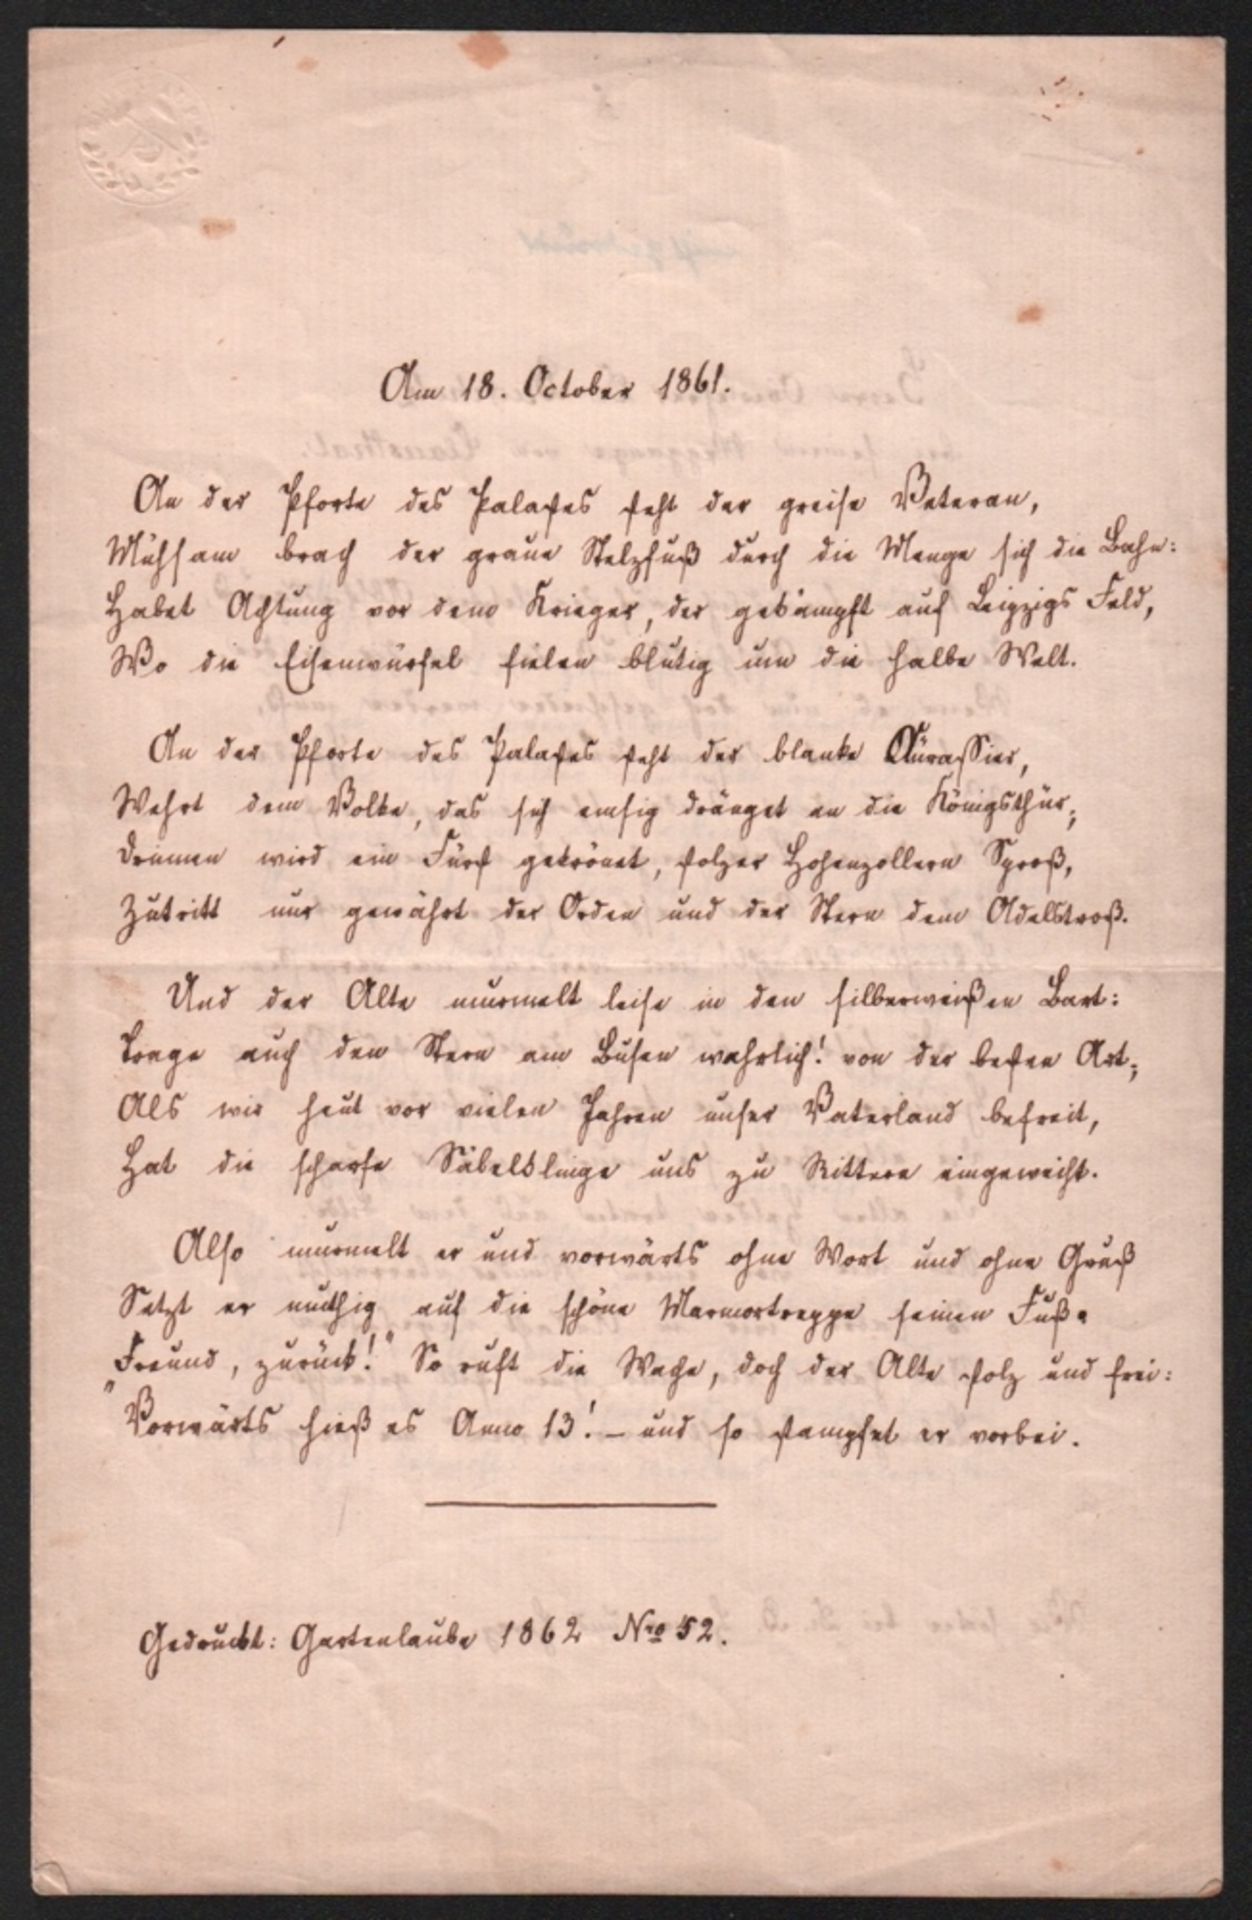 Am 18. October 1861.
An der Pforte des Palastes steht der greise Veteran,
Mühsam brach der graue Stelzfuß durch die Menge sich die Bahn:
Habet Achtung vor dem Krieger, der gekämpft auf Leipzigs Feld,
Wo die Eisenwürfel fielen blutig um die halbe Welt.
An der Pforte des Palastes steht der blanke Cürassier,
Wehrt dem Volke, das sich emsig dränget an die Königsthür;
Drinnen wird ein Fürst gekrönet, stolzer Hohenzollern Sproß,
Zutritt nur gewährt der Orden und der Stern dem Adelstroß.
Und der Alte murmelt leise in den silberweißen Bart:
Trage auch den Stern am Busen wahrlich! von der besten Art;
Als wir heut vor vielen Jahren unser Vaterland befreit,
Hat die scharfe Säbelklinge uns zu Rittern eingeweiht.
Also murmelt er und vorwärts ohne Wort und ohne Gruß
Setzt er muthig auf die schöne Marmortreppe seinen Fuß.
„Freund, zurück!" So ruft die Wache, doch der Alte stolz und frei:
"Vorwärts hieß es Anno 13! – und so stampfet er vorbei.
Gedruckt: Gartenlaube 1862 Nro 52.